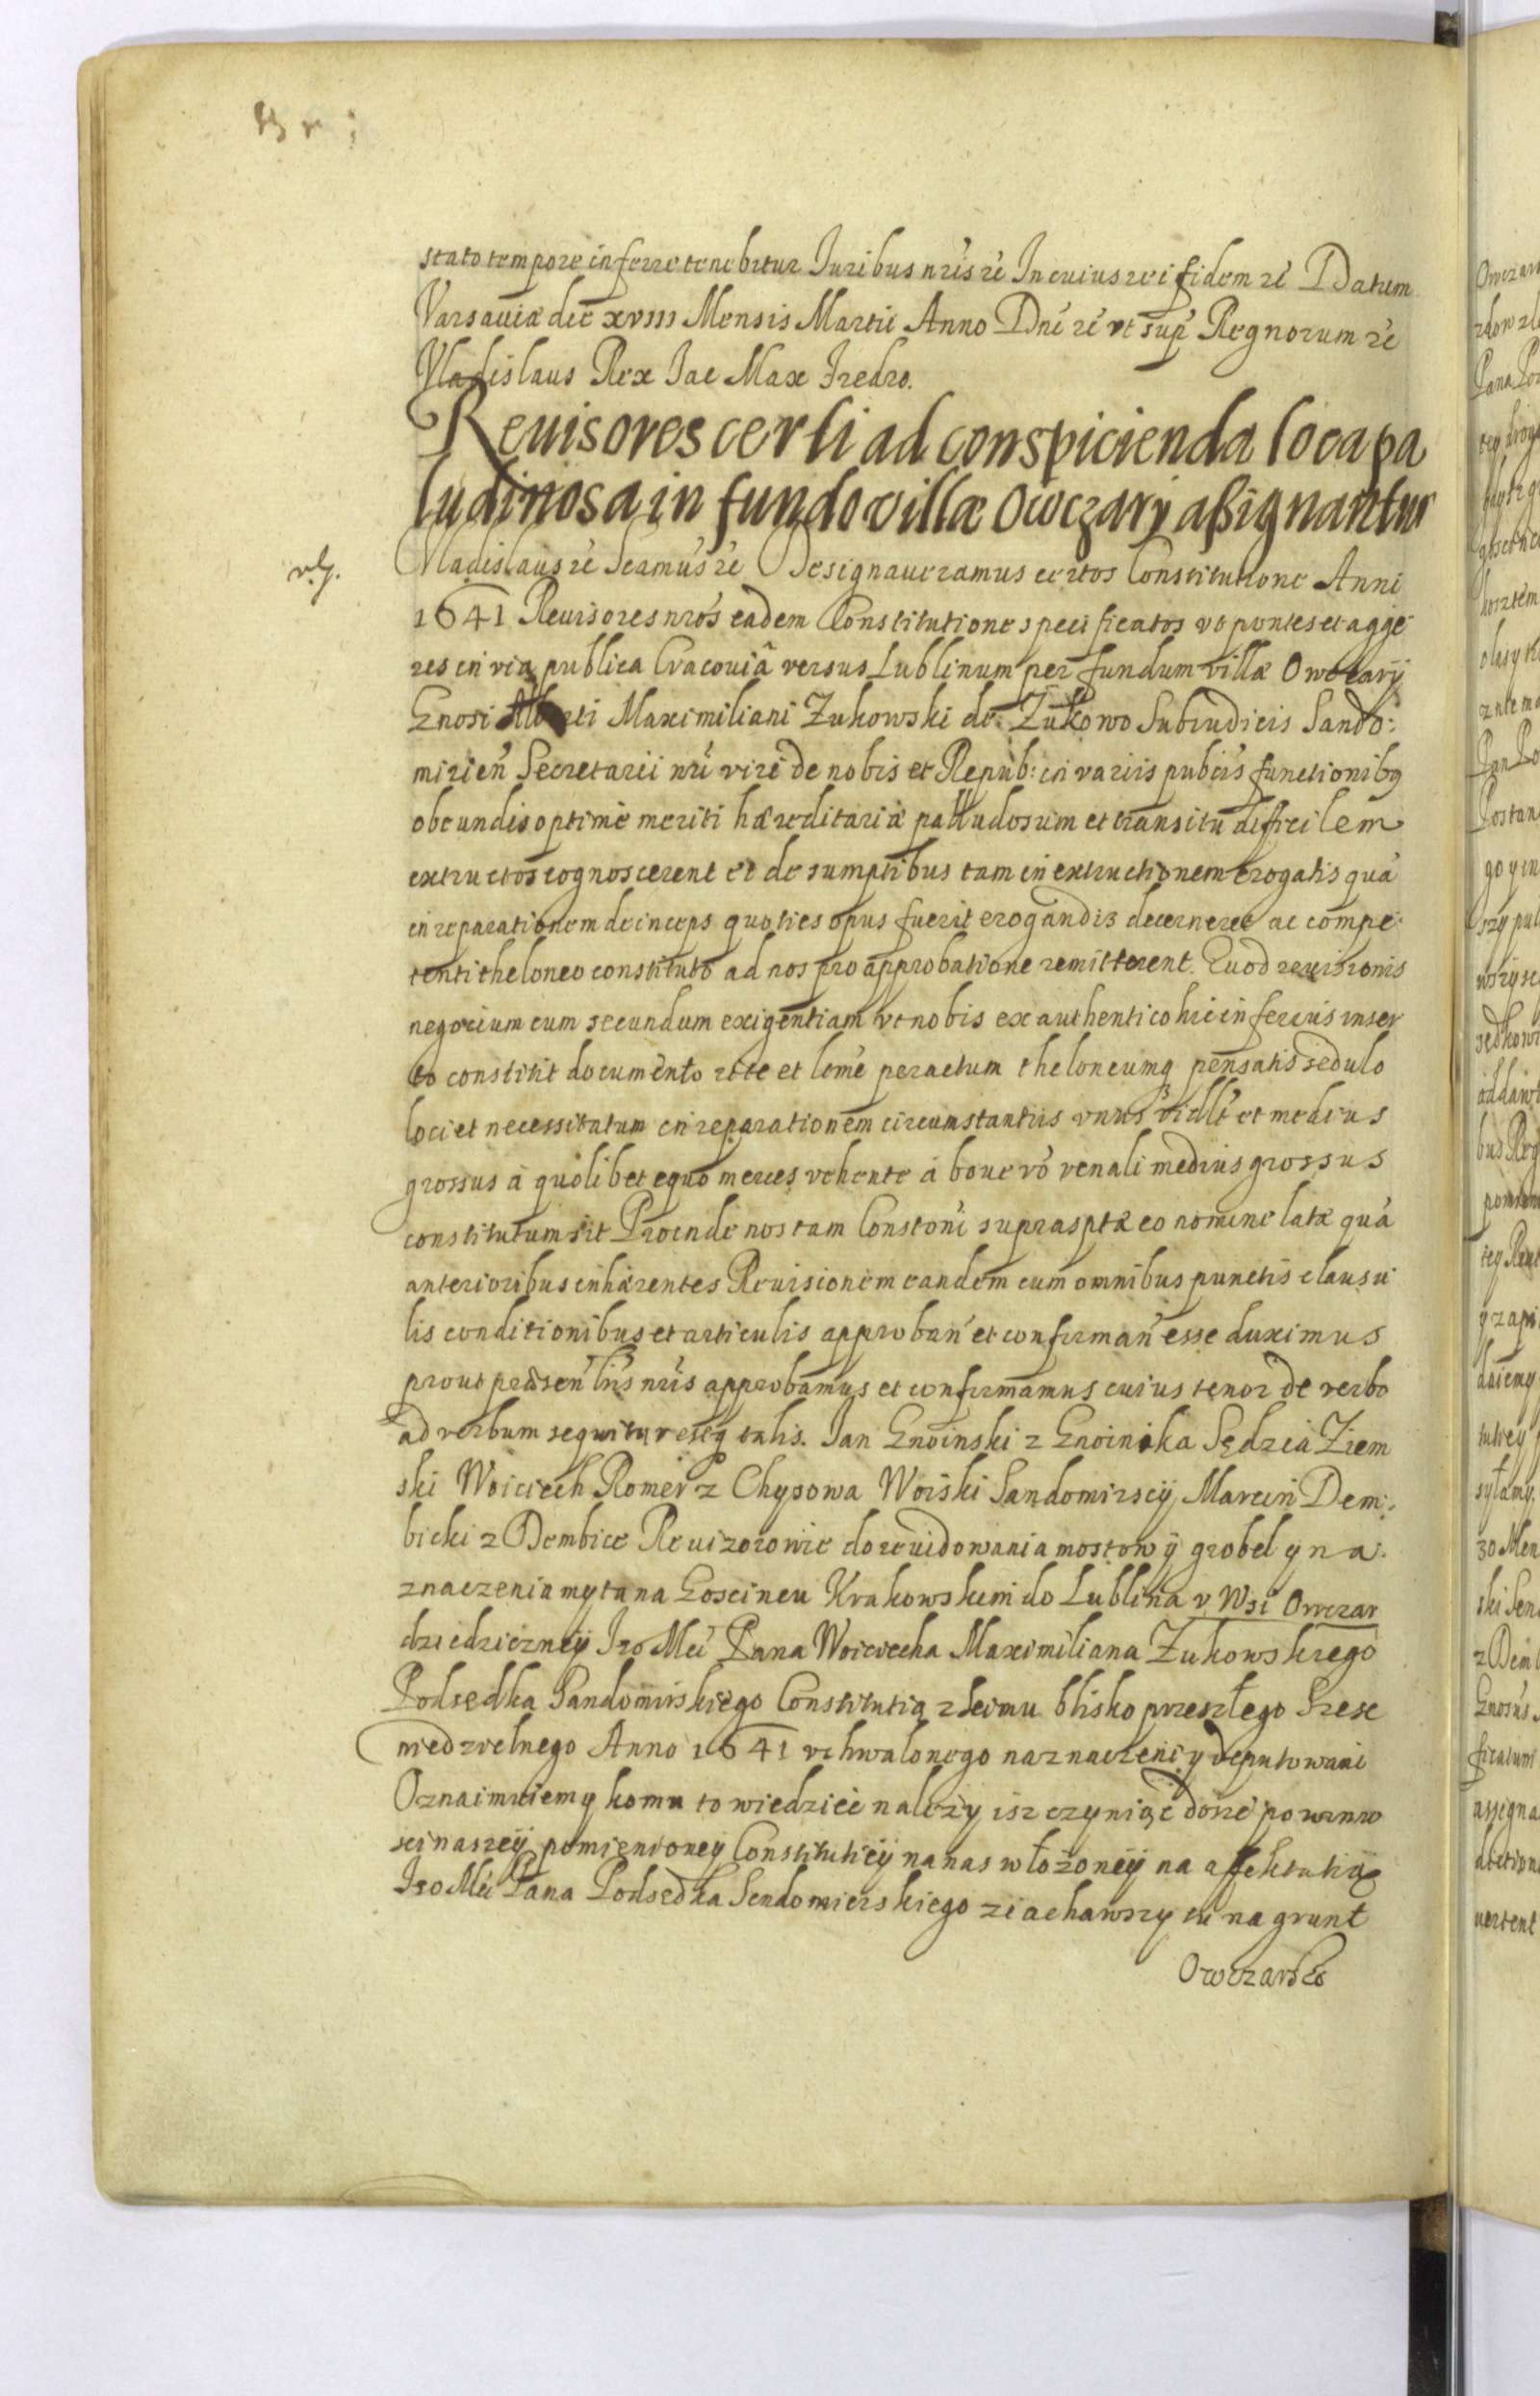 stato tempore inferre tenebitur Iuribus nris rć In cuius rei fidem rć Datum
Varsaviæ die xviii Mensis Martii Anno Dni rć ut sup Regnorum rć
Vladislaus Rex Iac Max Fredro.
Reuisores certi ad conspicienda loca pa
ludinosa in fundo villæ Owczary assignantur
Vladislaus rć Seamus rć Designaueramus certos Constitutione Anni
1641 Reuisores nros eadem Constitutione specificatos vt pontes et agge
res in via publica Cracouiâ versus Lublinum per fundum villæ Owczary
Gnosi Alberti Maximiliani Zukowski de Zukowo Subiudicis Sando:
mirien Secretarii nri viri de nobis et Repub: in variis publcis functionibq
obeundis optimè meriti hæreditariæ palludosum et transitu difficilem
extructos cognoscerent et de sumptibus tam in extructionem erogatis quà
in reparationem deinceps quoties opus fuerit erogandis decerneret ac compe
tenti theloneo constituto ad nos pro approbatione remitterent. Quod reuisionis
negocium cum secundum exigentiam vt nobis ex authentico hic inferius inser
to constitit documento rite et lemè peractum theloneumq pensatis sedulo
loci et necessitatum in reparationem circumstantiis vnus vidlt et medius
grossus à quolibet equo merces vehente à boue vo venali medius grossus
constitutum sit Proinde nos tam Constoni suprasptæ eo nomine latæ quà
anterioribus inhærentes Reuisionem eandem cum omnibus punctis clausu
lis conditionibus et articulis approban et confirman esse duximus
prout præsen lris nris approbamus et confirmamus cuius tenor de verbo
ad verbum sequitur estq talis. Jan Gnoinski z Gnoinika Sędzia Ziem
ski Woiciech Romer z Chysowa Woiski Sandomirscij Marcin Dem:
bicki z Dembice Reuizorowie do reuidowania mostow ÿ grobel y na
znaczenia myta na Goscincu Krakowskim do Lublina v Wsi Owczar
dziedziczneÿ Jeo Mci Pana Woiciecha Maximiliana Zukowskiego
Podsędka Sandomirskiego Constitutią z Seimu blisko przeszłego Szesc
niedzielnego Anno 1641 vchwalonego naznaczeni y deputowani
Oznaimuiemy komu to wiedzieć należy isz czyniąc dosić powinno
sci naszeÿ pomienioney Constitutieÿ na nas włożoneÿ na affektatią
Jeo Mci Pana Podsędka Sendomierskiego ziachawszy tu na grunt
Owczarski